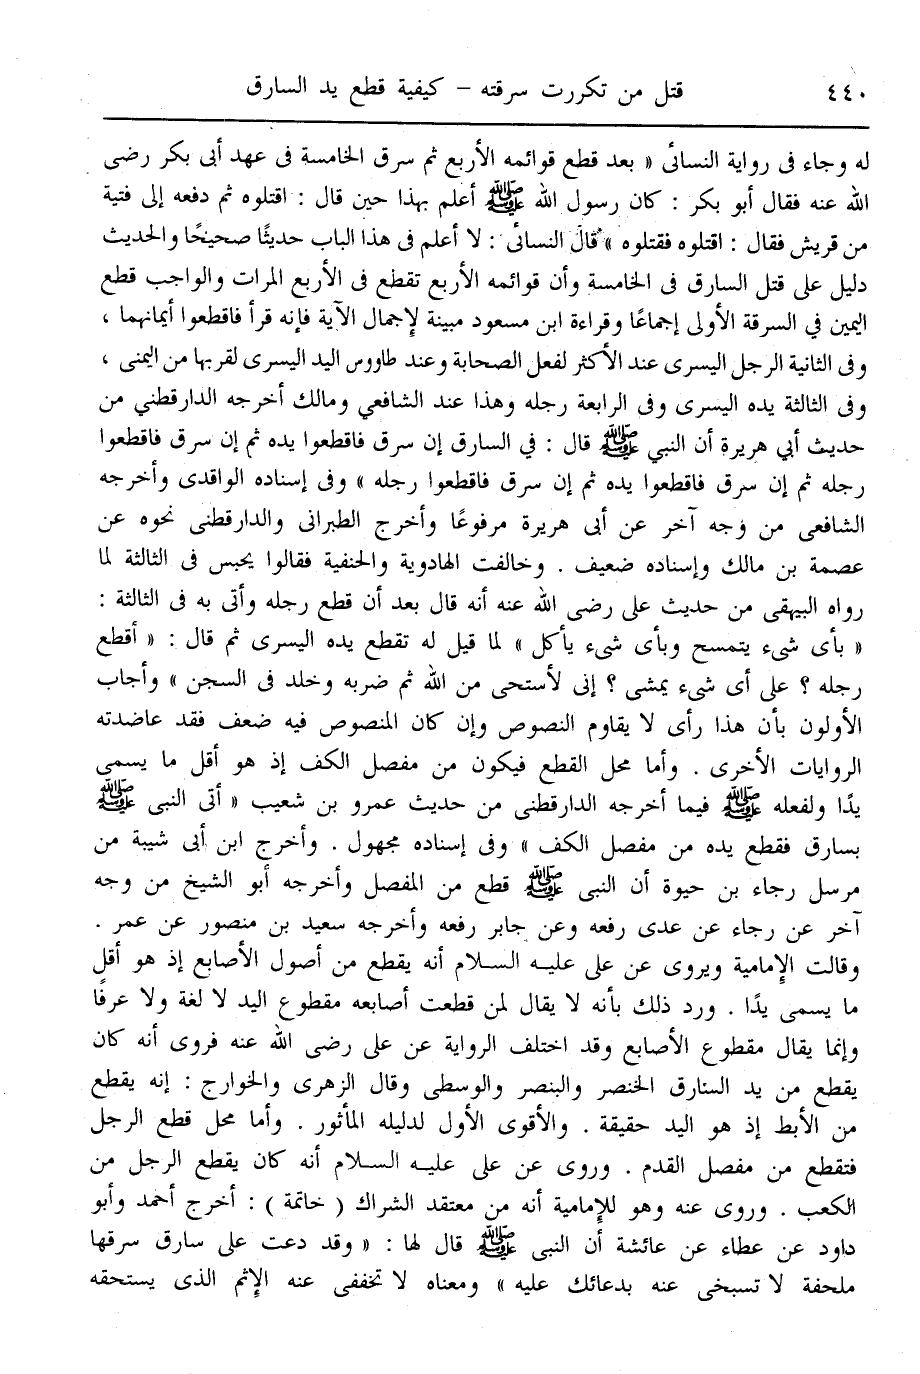 ٤٤٠ قتل من تكررت سرقته – كيفية قطع يد السارق
له وجاء فى رواية النسائى « بعد قطع قوائمه الأربع ثم سرق الخامسة فى عهد أبى بكر رضى
الله عنه فقال أبو بكر : كان رسول الله ﷺ أعلم بهذا حين قال : اقتلوه ثم دفعه إلى فتية
من قريش فقال : اقتلوه فقتلوه » قال النسائى : لا أعلم فى هذا الباب حديثًا صحيحًا والحديث
دليل على قتل السارق فى الخامسة وأن قوائمه الأربع تقطع فى الأربع المرات والواجب قطع
اليمين في السرقة الأولى إجماعًا وقراءة ابن مسعود مبينة لإجمال الآية فإنه قرأ فاقطعوا أيمانهما ،
وفى الثانية الرجل اليسرى عند الأكثر لفعل الصحابة وعند طاووس اليد اليسرى لقربها من اليمنى ،
وفى الثالثة يده اليسرى وفى الرابعة رجله وهذا عند الشافعي ومالك أخرجه الدارقطني من
حديث أبي هريرة أن النبي ﷺ قال : في السارق إن سرق فاقطعوا يده ثم إن سرق فاقطعوا
رجله ثم إن سرق فاقطعوا يده ثم إن سرق فاقطعوا رجله » وفى إسناده الواقدى وأخرجه
الشافعى من وجه آخر عن أبى هريرة مرفوعًا وأخرج الطبرانى والدارقطنى نحوه عن
عصمة بن مالك وإسناده ضعيف . وخالفت الهادوية والحنفية فقالوا يحبس فى الثالثة لما
رواه البيهقى من حديث على رضى الله عنه أنه قال بعد أن قطع رجله وأتى به فى الثالثة :
« بأى شىء يتمسح وبأى شىء يأكل » لما قيل له تقطع يده اليسرى ثم قال : « أقطع
رجله ؟ على أى شىء يمشى ؟ إنى لأستحى من الله ثم ضربه وخلد فى السجن » وأجاب
الأولون بأن هذا رأى لا يقاوم النصوص وإن كان المنصوص فيه ضعف فقد عاضدته
الروايات الأخرى . وأما محل القطع فيكون من مفصل الكف إذ هو أقل ما يسمى
يدًا ولفعله ﷺ فيما أخرجه الدارقطنى من حديث عمرو بن شعيب « أتى النبى ﷺ
بسارق فقطع يده من مفصل الكف » وفى إسناده مجهول . وأخرج ابن أبى شيبة من
مرسل رجاء بن حيوة أن النبى ﷺ قطع من المفصل وأخرجه أبو الشيخ من وجه
آخر عن رجاء عن عدى رفعه وعن جابر رفعه وأخرجه سعيد بن منصور عن عمر .
وقالت الإمامية ويروى عن على عليه السلام أنه يقطع من أصول الأصابع إذ هو أقل
ما يسمى يدًا . ورد ذلك بأنه لا يقال لمن قطعت أصابعه مقطوع اليد لا لغة ولا عرفًا
وإنما يقال مقطوع الأصابع وقد اختلف الرواية عن على رضى الله عنه فروى أنه كان
يقطع من يد السارق الخنصر والبنصر والوسطى وقال الزهرى والخوارج : إنه يقطع
من الأبط إذ هو اليد حقيقة . والأقوى الأول لدليله المأثور . وأما محل قطع الرجل
فتقطع من مفصل القدم . وروى عن على عليه السلام أنه كان يقطع الرجل من
الكعب . وروى عنه وهو للإمامية أنه من معتقد الشراك ( خاتمة ) : أخرج أحمد وأبو
داود عن عطاء عن عائشة أن النبى ﷺ قال لها : « وقد دعت على سارق سرقها
ملحفة لا تسبخى عنه بدعائك عليه » ومعناه لا تخففى عنه الإثم الذى يستحقه